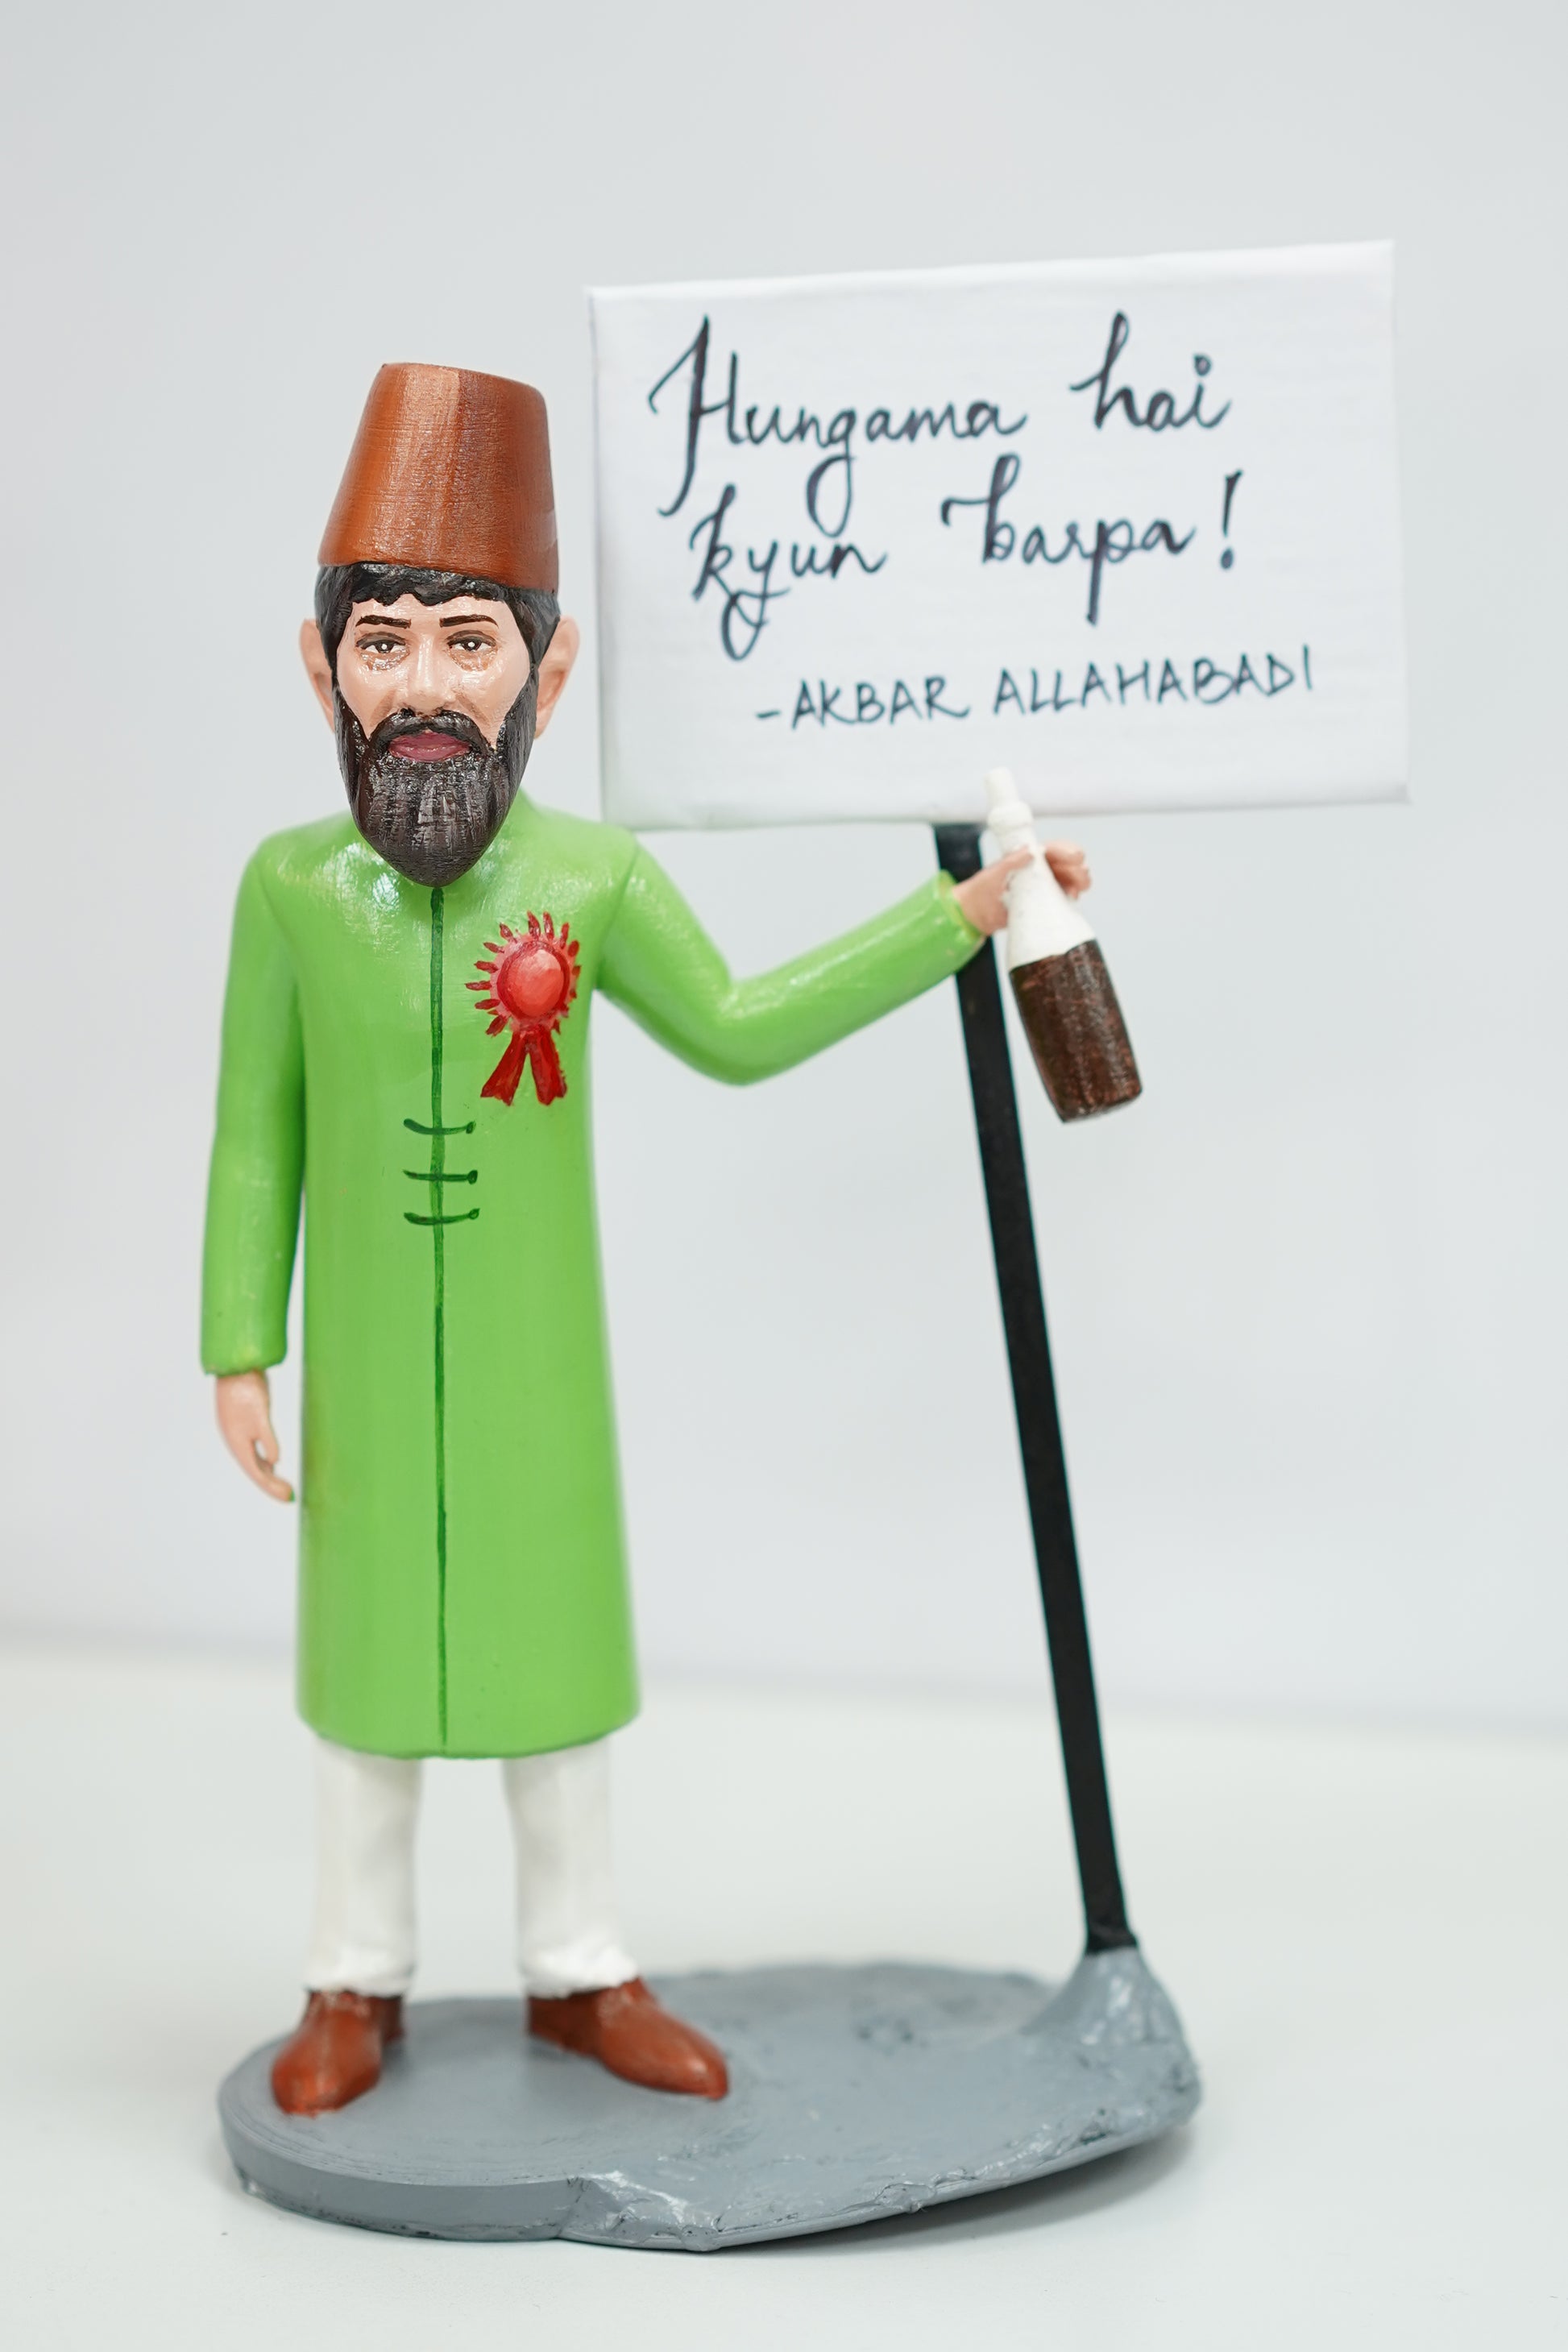 Hungama hai
kyun barpa!
-AKBAR ALLAHABADI